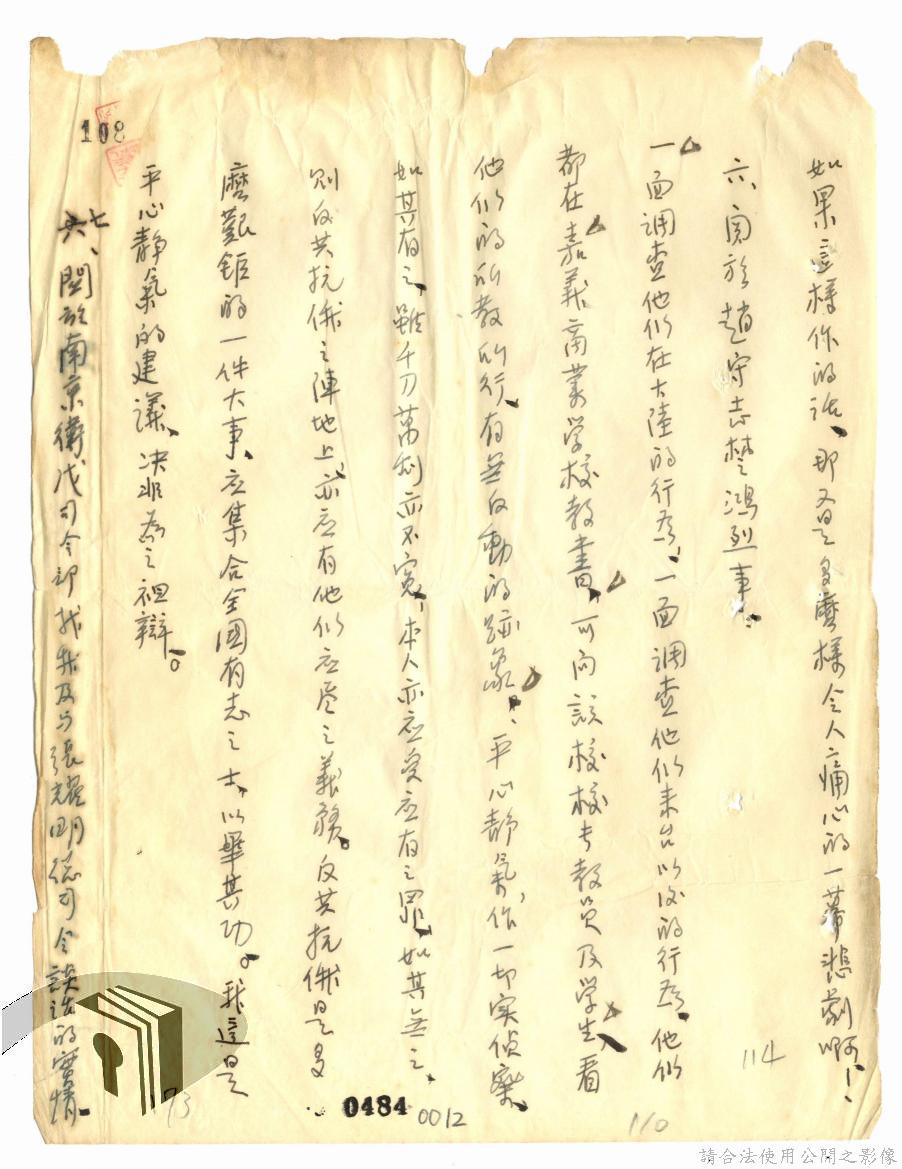 如果這樣作的話、那又是多麼樣令人痛心的一幕悲劇啊！
六、関於趙守志楚鴻烈事：
一面調查他們在大陸的行為、一面調查他們來台以後的行為、他們
都在嘉義商業学校教書、可向該校校長教員及学生、看
他們的所教所行、有無反動的跡象、平心静氣、作一切实偵察、
如其有之、雖千刀萬剮亦不寃、本人亦应受应有之罪、如其無之、
則反共抗俄之陣地上、亦应有他們应尽之義務。反共抗俄是多
麼艱鉅的一件大事、应集合全國有志之士、以畢其功。我這是
平心静氣的建議、决非為之袒辯。
七、関於南京衛戍司令部找我及与張耀明總司令談話的實情、
108
73
0484
0012
110
114
請合法使用公開之影像